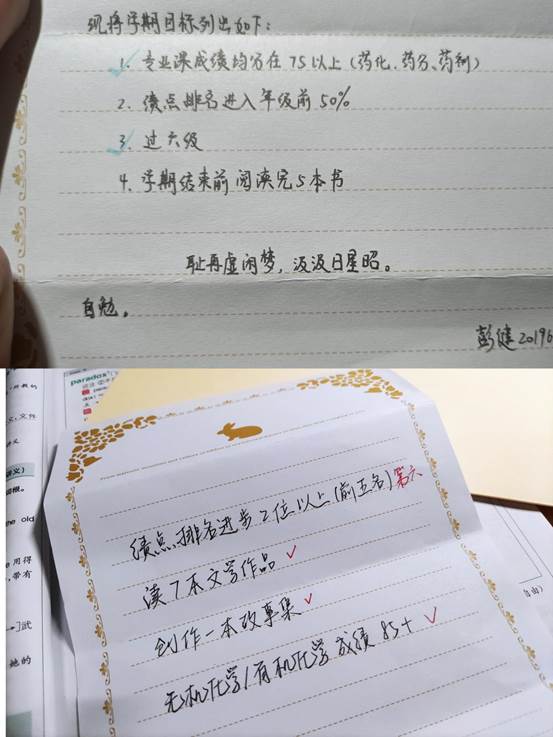 现将学期目标列出如下:
1. 专业课成绩均分在75以上(药化、药分、药剂)
2. 绩点排名进入年级前50%
3. 过六级
4. 学期结束前阅读完5本书
耻再虚闲梦,汲汲日星昭。
自勉。
彭健 20196
paradox
, 文件
义)
词根。
he old
用得
, 带有
→]武
她的
绩点排名进步2位以上(前五名)第六
读7本文学作品 ✓
创作一本故事集 ✓
无机化学/有机化学成绩85+ ✓
自由)